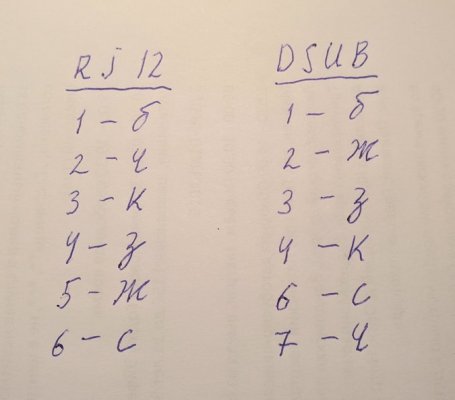 RJ 12 DSUB
1 - б 1 - б
2 - ч 2 - ж
3 - к 3 - з
4 - з 4 - к
5 - ж 6 - с
6 - с 7 - ч